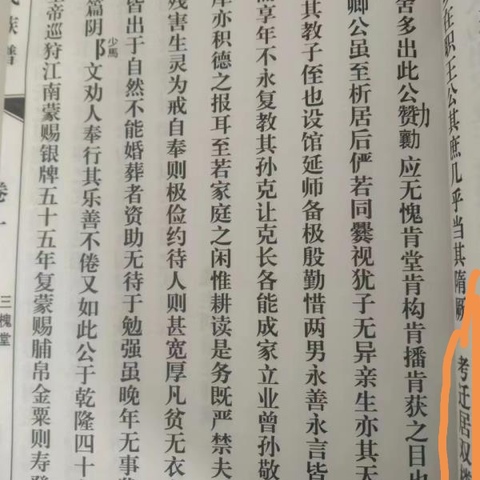 考迁居双
少在职王公其庶几乎当其隋
舍多出此公赞勷应无愧肯堂肯构肯播肯获之目
力
卿公虽至析居后俨若同爨视犹子无异亲生亦其天
其教子侄也设馆延师备极殷勤惜两男永善永言皆
享年不永复教其孙克让克长各能成家立业曾孙敬
库亦积德之报耳至若家庭之闲惟耕读是务既严禁夫
残害生灵为戒自奉则极俭约待人则甚宽厚凡贫无衣
皆出于自然不能婚葬者资助无待于勉强虽晚年无事
篇阴文劝人奉行其乐善不倦又如此公于乾隆四十
少馬
皇帝巡狩江南蒙赐银牌五十五年复蒙赐脯帛金粟则寿
氏族谱
卷
三槐堂